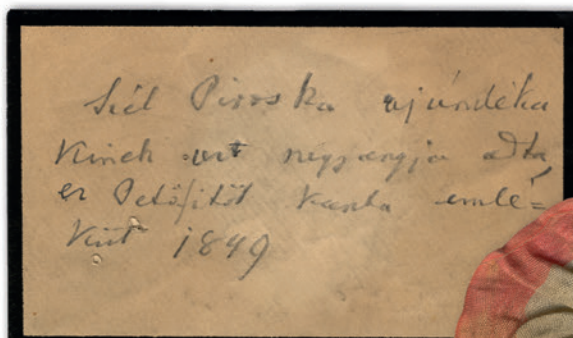 Siél Piroska ajándéka
Kinek ezt nagyanyja adta,
ez Petőfitől kapta emlé=
Kűt 1849